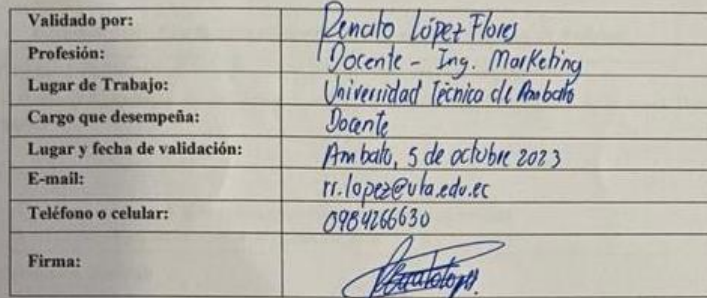 Validado por: Renato López Flores
Profesión: Docente - Ing. Marketing
Lugar de Trabajo: Universidad Técnica de Ambato
Cargo que desempeña: Docente
Lugar y fecha de validación: Ambato, 5 de octubre 2023
E-mail: rr.lopez@uta.edu.ec
Teléfono o celular: 0984266630
Firma: